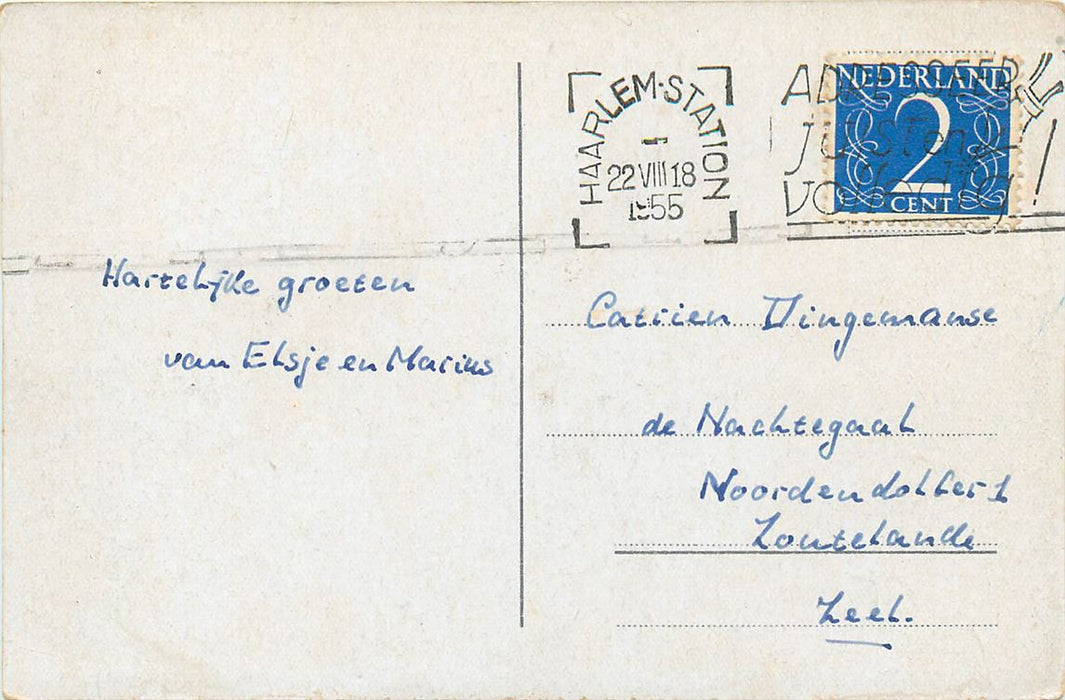 HAARLEM-STATION
22 VIII 18
1955
ADRESSEER
juist en
volledig!
NEDERLAND
2
CENT
Hartelijke groeten
van Elsje en Marius
Catrien Dingemanse
de Nachtegaal
Noordendolfer 1
Zoutelande
Zeel.